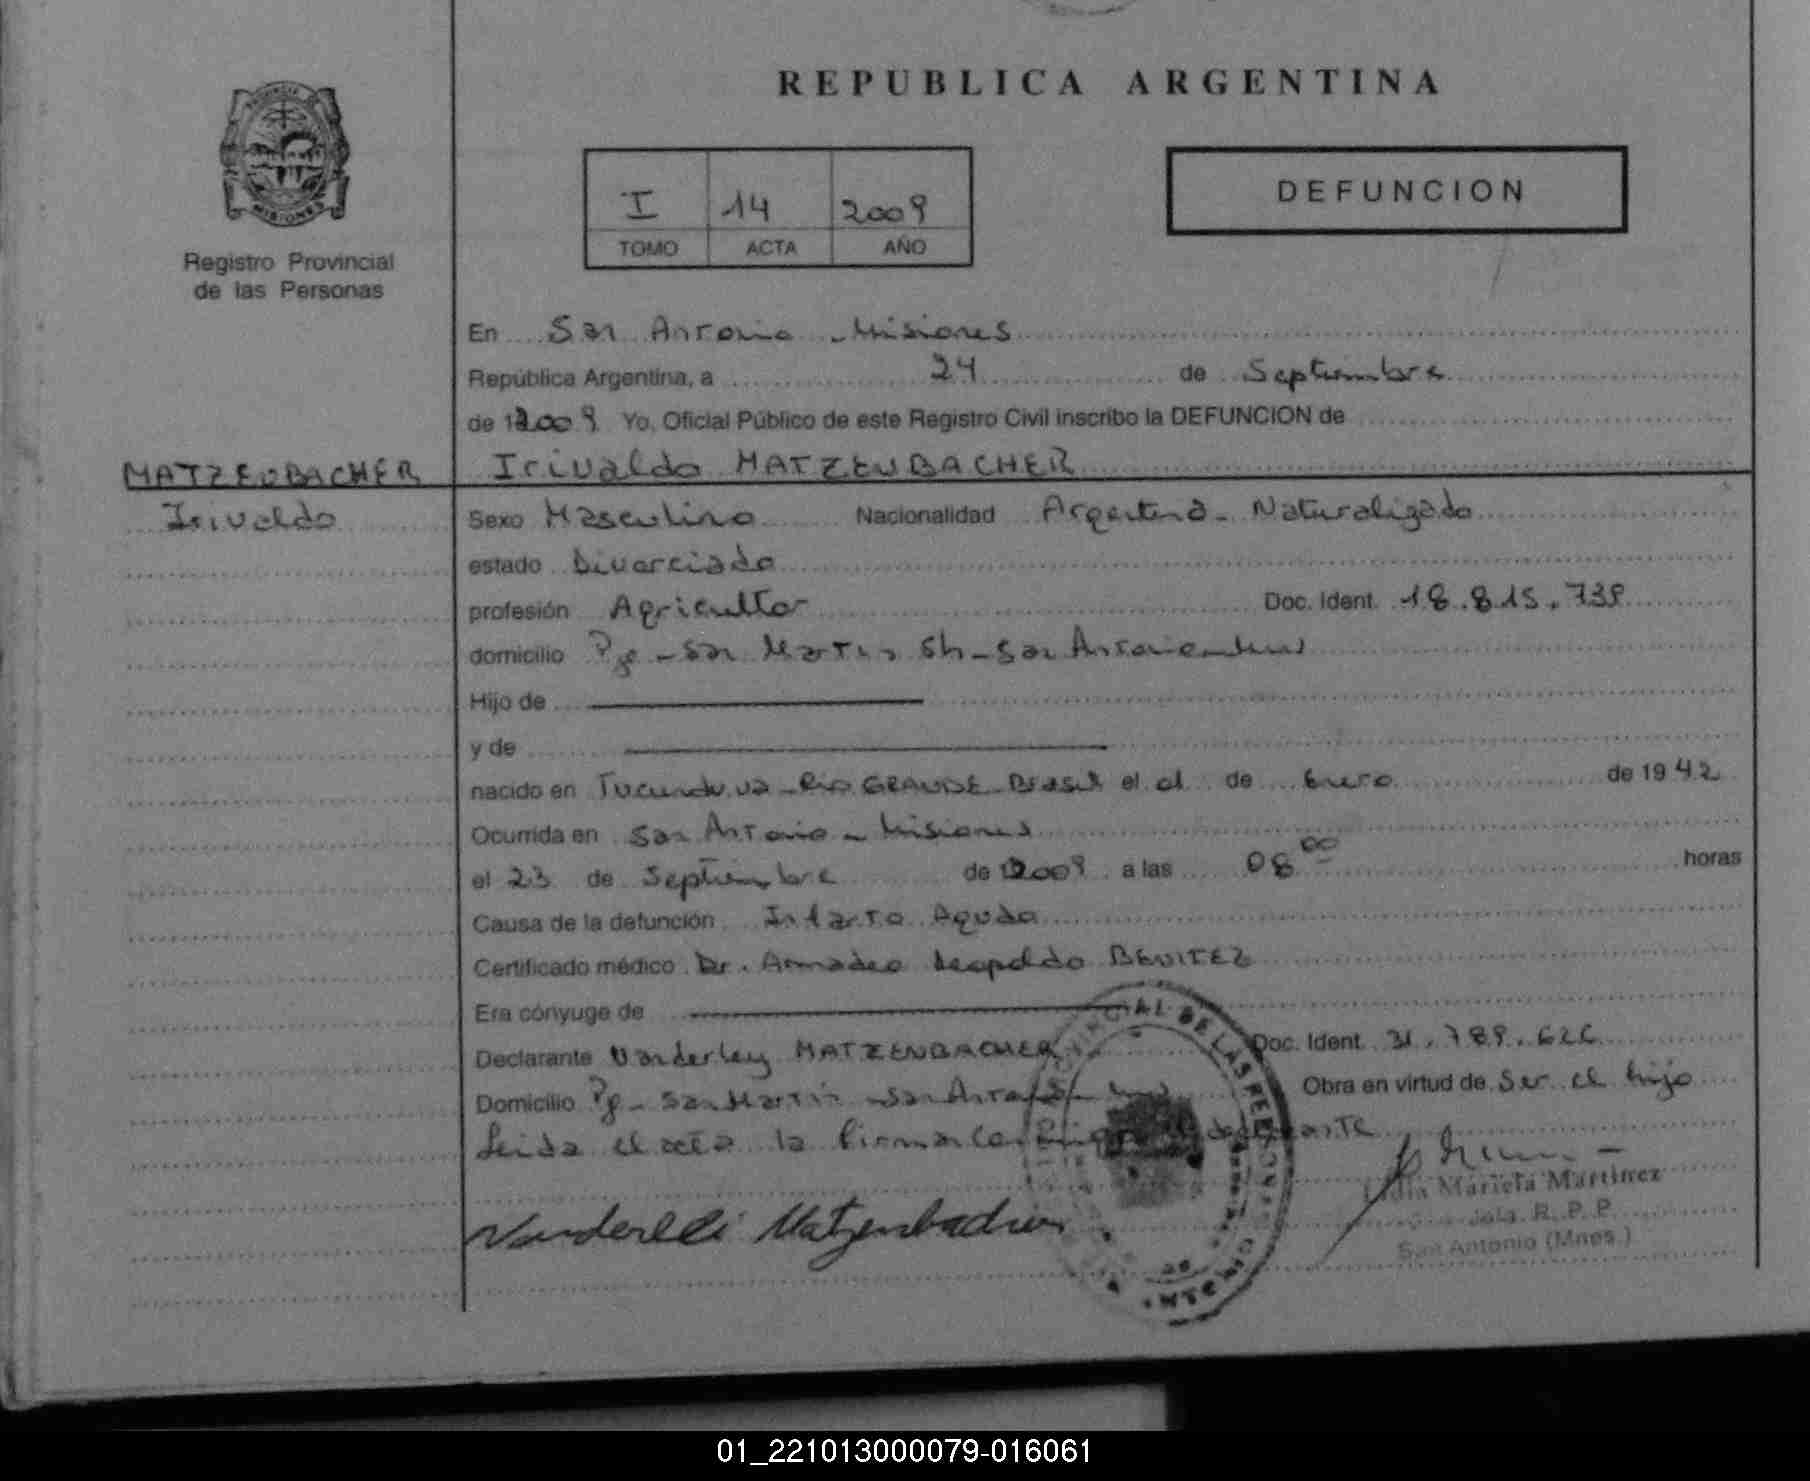 REPUBLICA ARGENTINA
PROVINCIA DE
MISIONES
Registro Provincial
de las Personas
I 14 2009
TOMO ACTA AÑO
DEFUNCION
En San Antonio - Misiones
República Argentina, a 24 de Septiembre
de 2009 Yo, Oficial Público de este Registro Civil inscribo la DEFUNCION de
MATZENBACHER
Irivaldo MATZENBACHER
Irivaldo
Sexo Masculino Nacionalidad Argentina - Naturalizado
estado Divorciado
profesión Agricultor Doc. Ident. 18.815.739
domicilio Pje - San Martin S/n - San Antonio - Mnes
Hijo de
y de
nacido en Tucunduva - Rio GRANDE - Brasil el 01 de Enero de 1942
Ocurrida en San Antonio - Misiones
el 23 de Septiembre de 2009 a las 08 00 horas
Causa de la defunción Infarto Agudo
Certificado médico Dr. Amadeo Leopoldo BENITEZ
Era cónyuge de
Declarante Vanderley MATZENBACHER Doc. Ident. 31.789.626
Domicilio Pje - San Martin - San Antonio - Obra en virtud de Ser el hijo
Leida el acta la firma declarante
Vanderlei Matzenbacher
Lidia Mariela Martinez
R. P. P.
San Antonio (Mnes.)
01_221013000079-016061